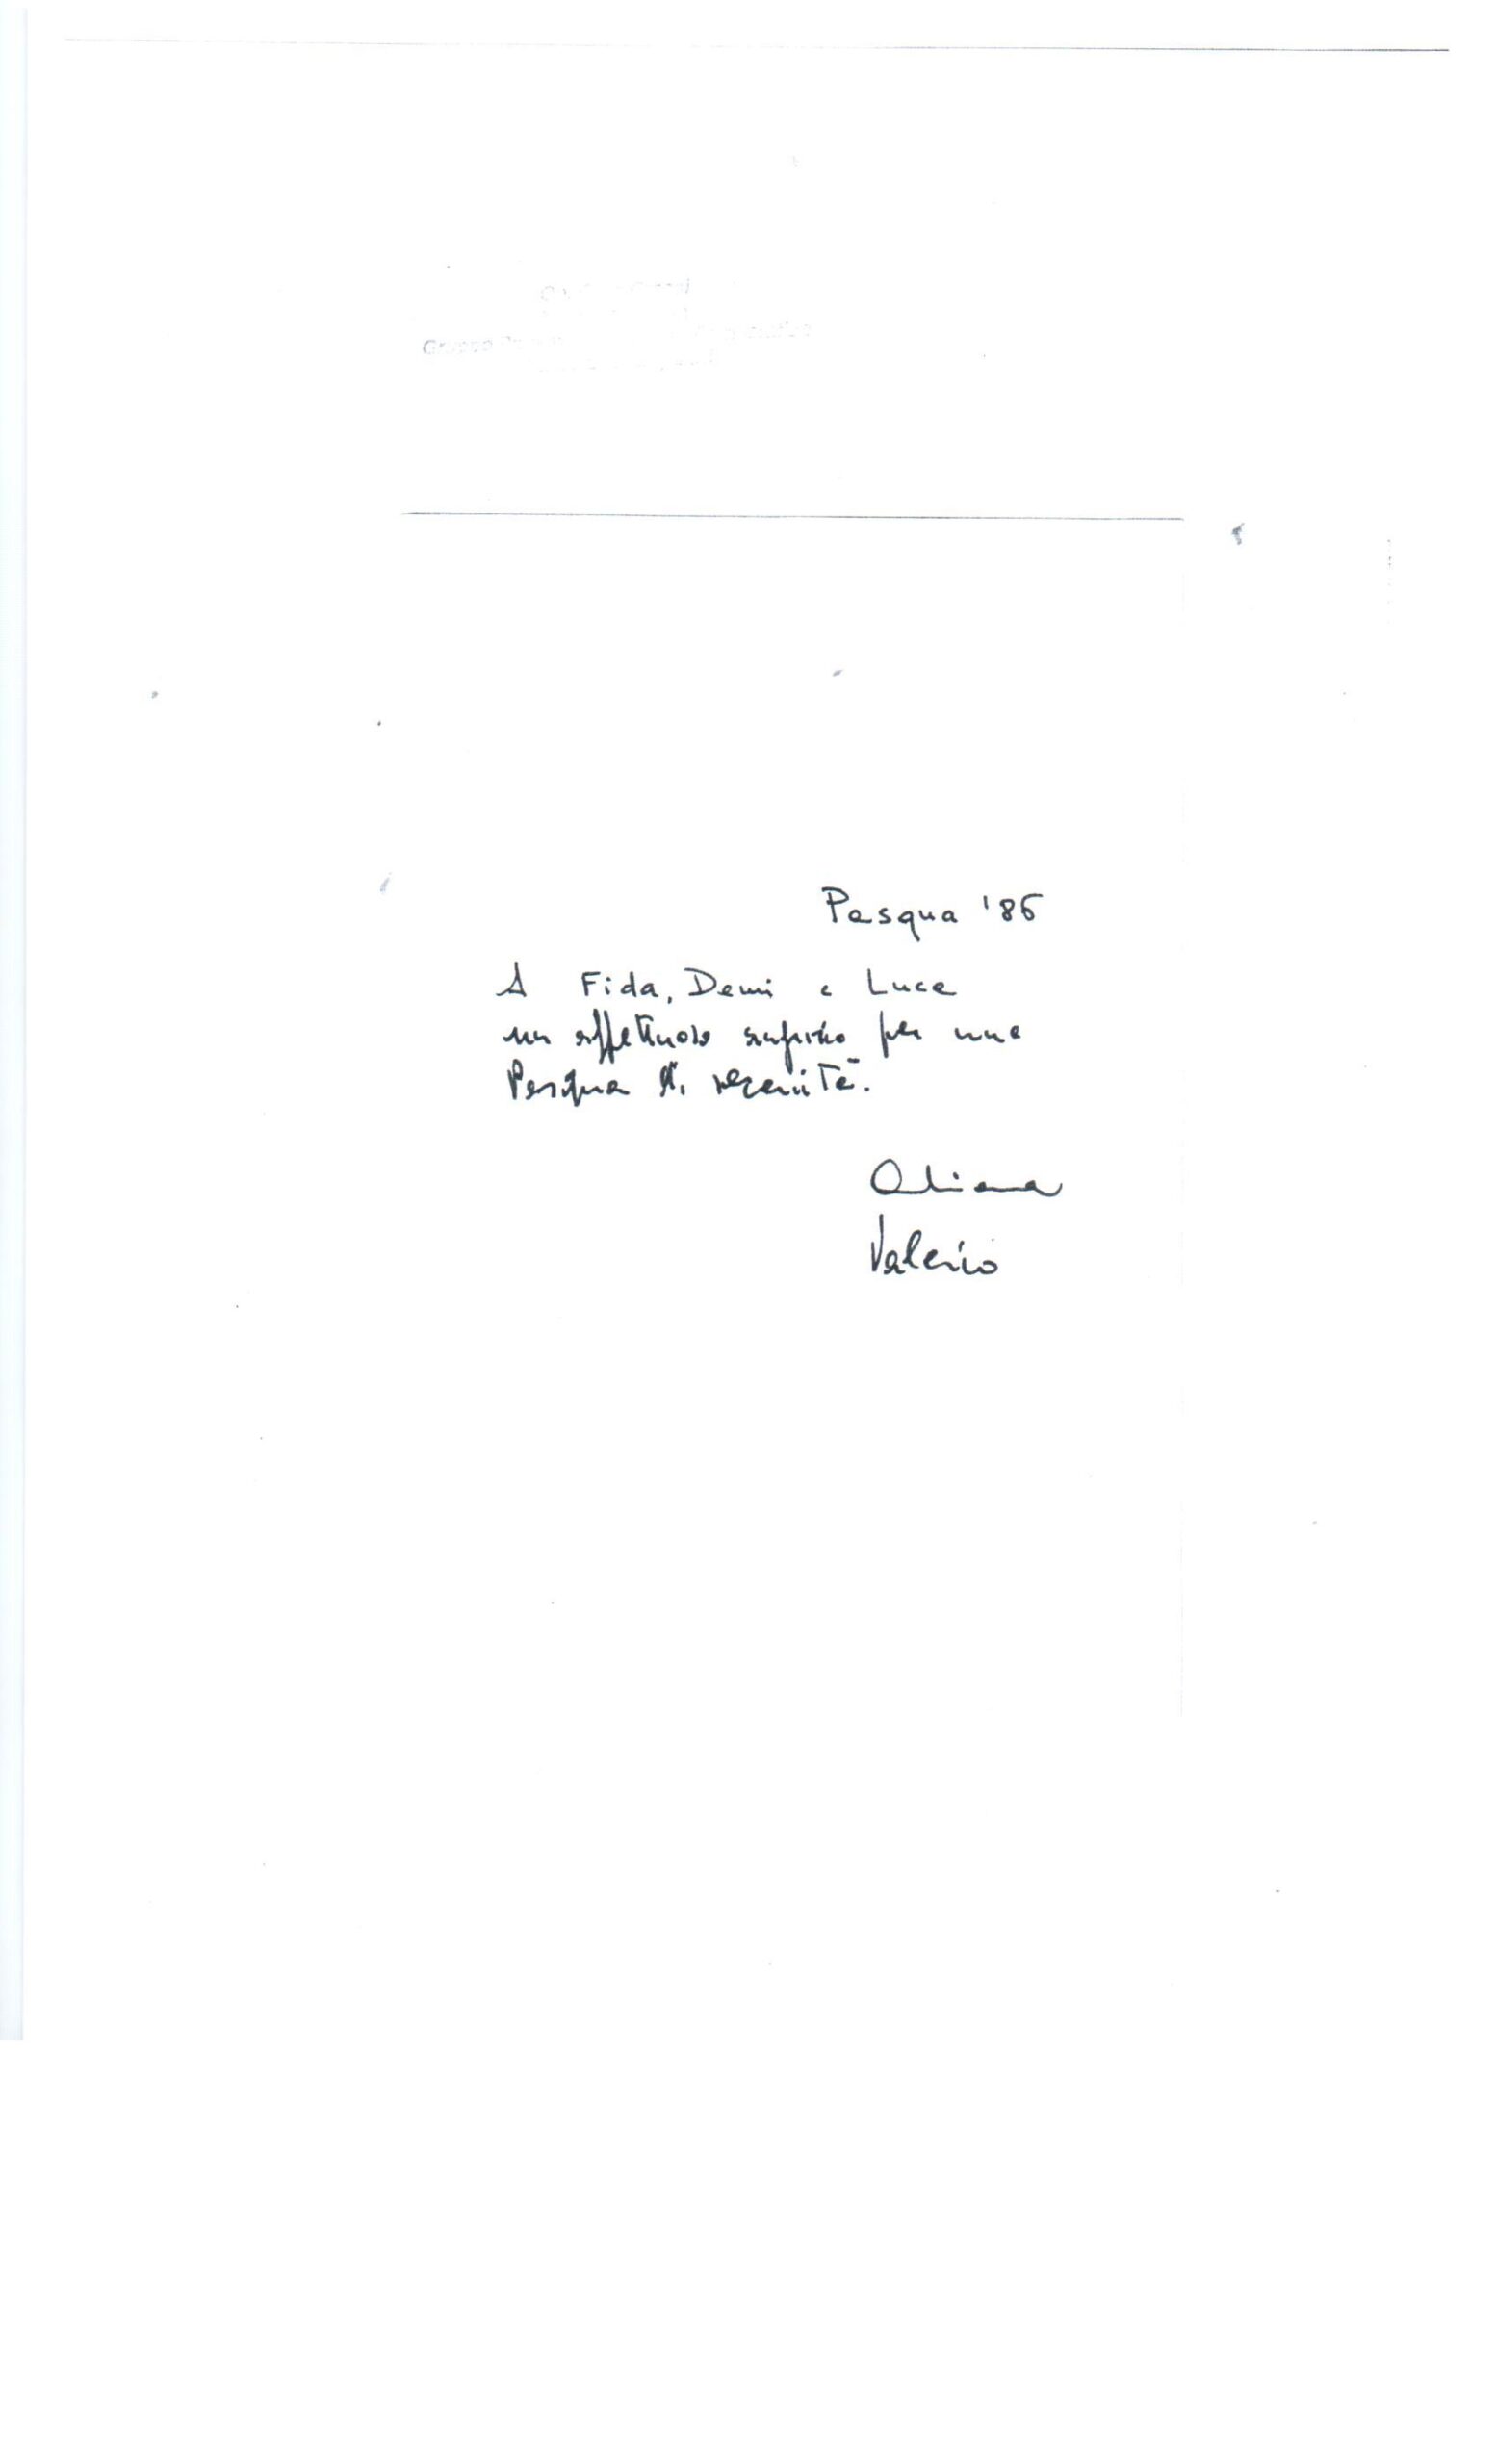 Gruppo
Pasqua '86
A Fida, Demi e Luca
un affettuoso augurio per una
Pasqua di serenità.
Valerio